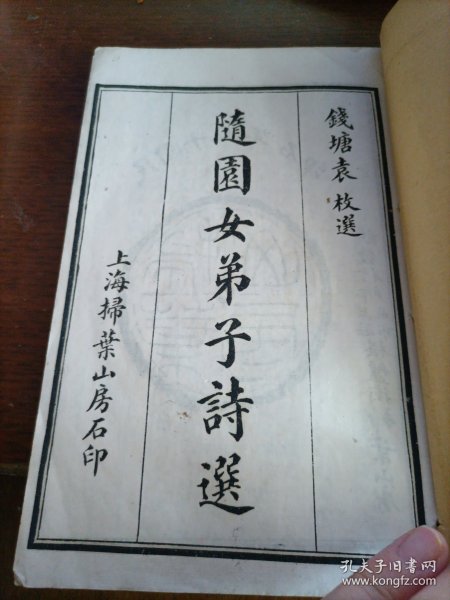 錢塘袁枚選
隨園女弟子詩選
上海掃葉山房石印
孔夫子旧书网
www.kongfz.com